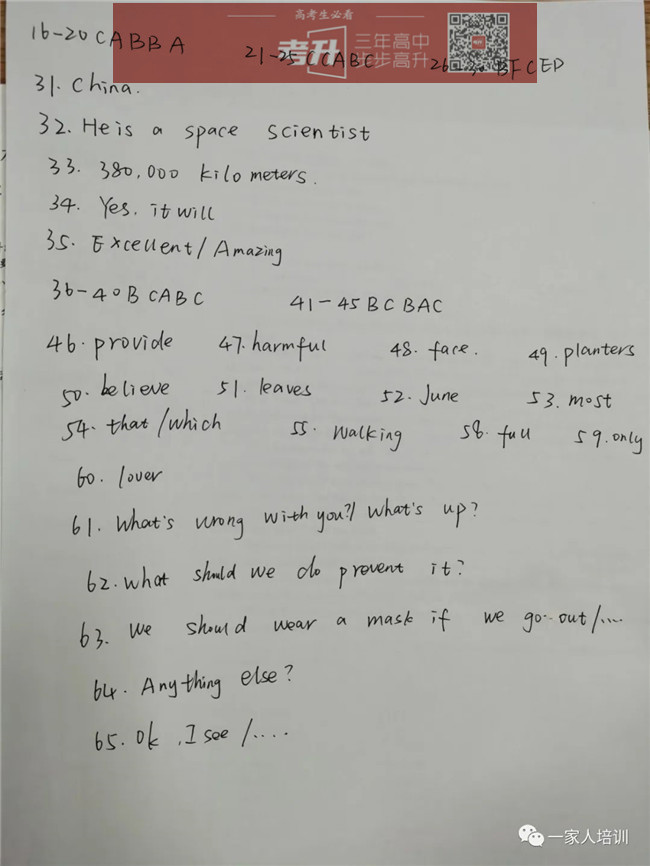 高考生必看
考升 三年高中
步高升
16-20 CABBA
21-25 CCABC
BFCED
31. China.
32. He is a space scientist
33. 380,000 kilometers.
34. Yes. it will
35. Excellent / Amazing
36-40 BCABC 41-45 BCBAC
46. provide 47. harmful 48. face. 49. planters
50. believe 51. leaves 52. June 53. most
54. that / which 55. walking 58. full 59. only
60. lover
61. What's wrong with you?/ what's up?
62. what should we do prevent it?
63. we should wear a mask if we go out/....
64. Anything else?
65. Ok, I see /....
一家人培训